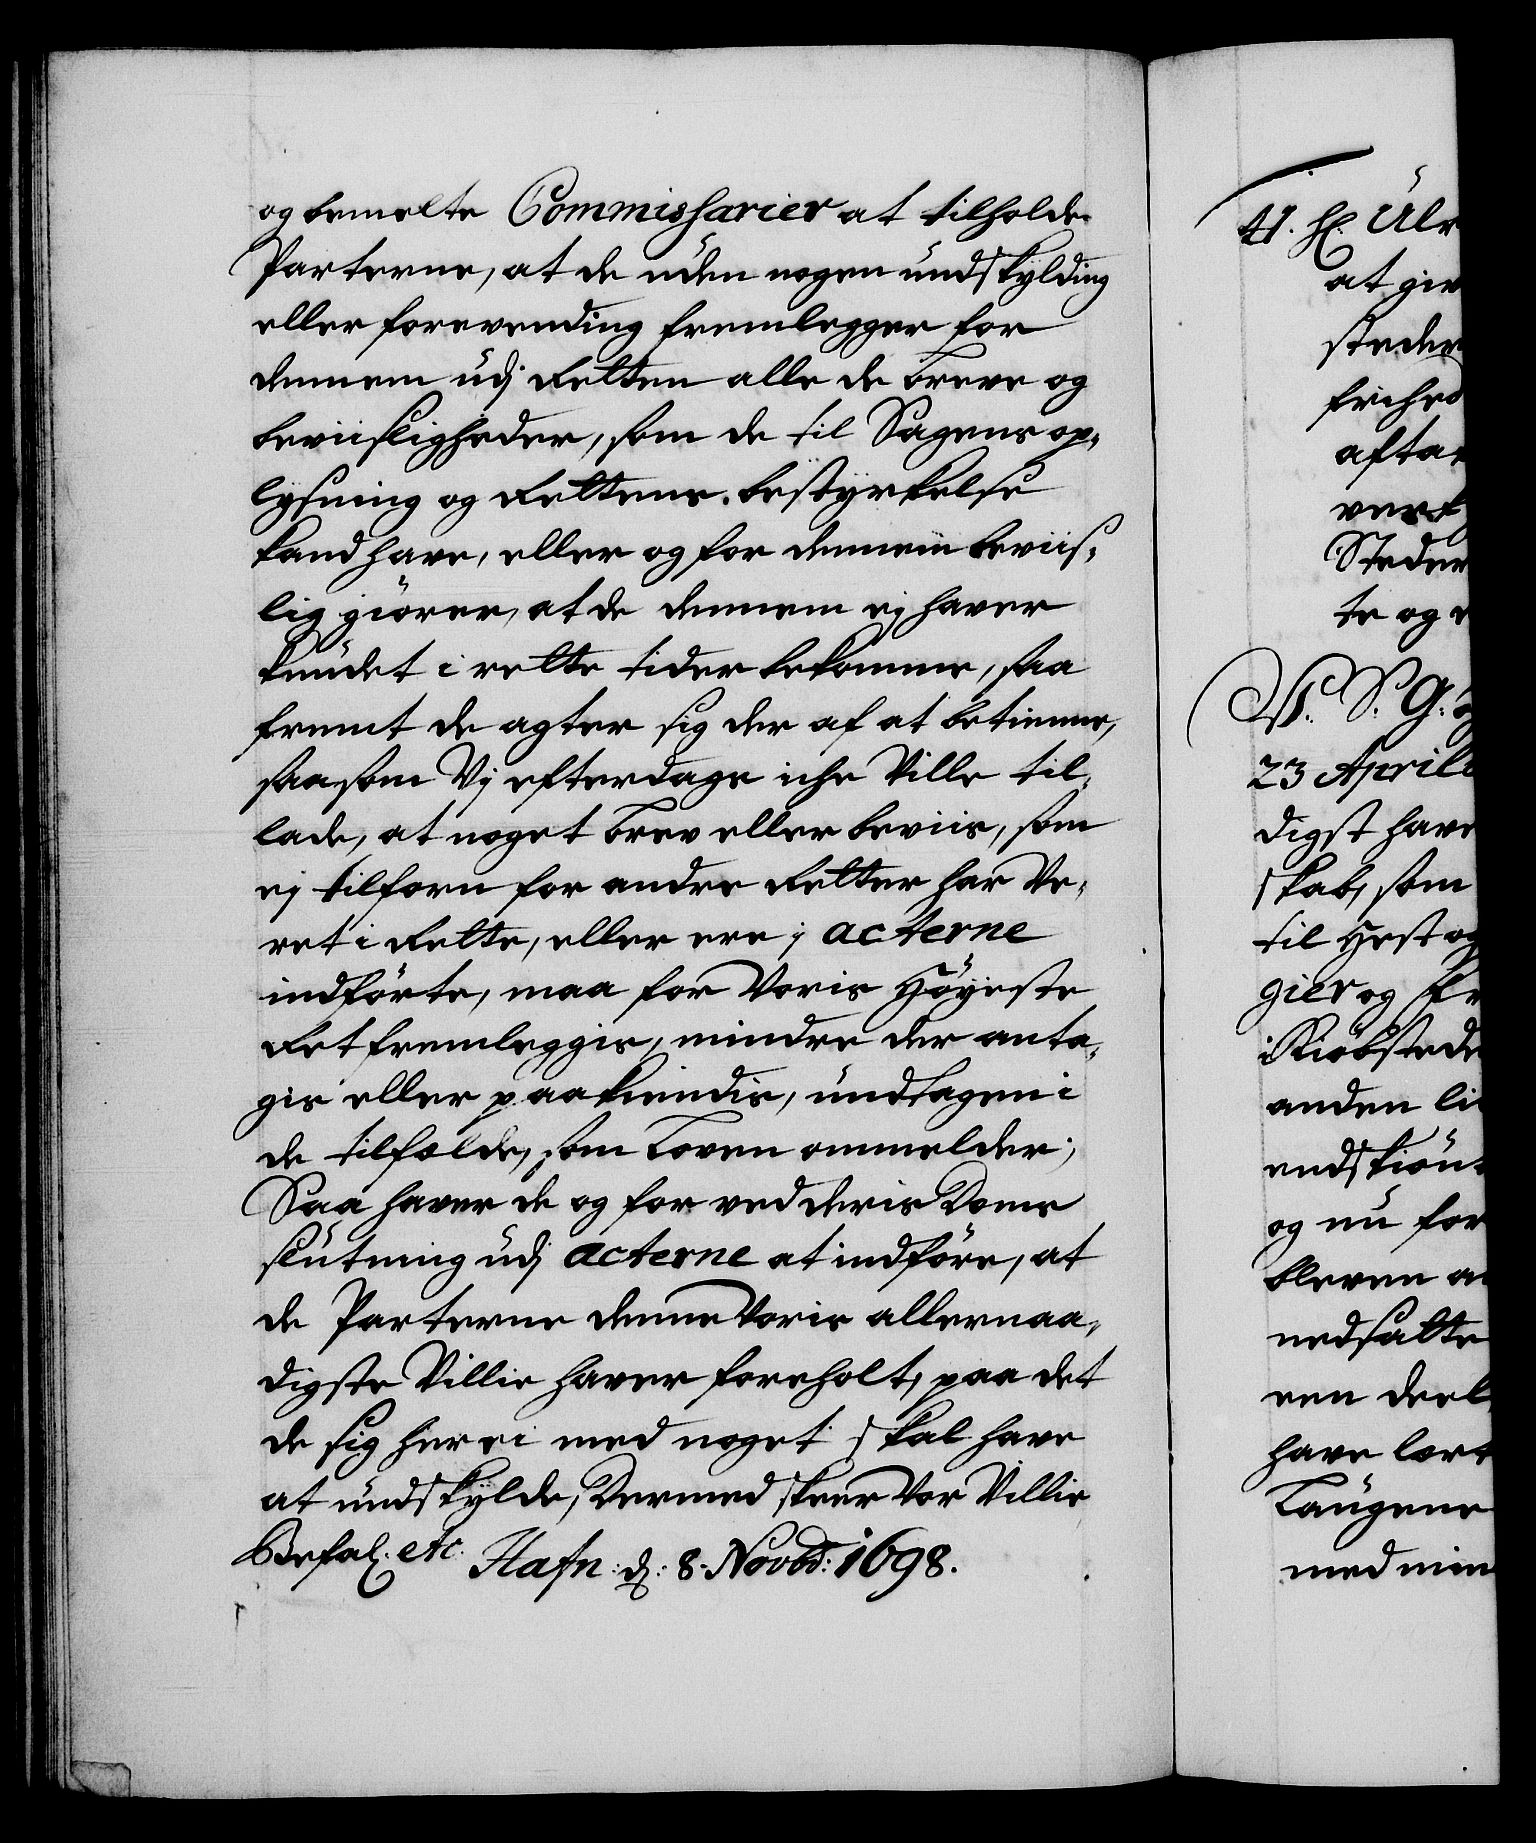 og bemelte Commissarier at tilholde
Parterne, at de uden nogen undskylding
eller forevending fremlegger for
dennem udj Retten alle de breve og
beviisligheder, som de til Sagens op-
lysning og Rettens bestyrkelse
kand have, eller og for dennem beviis-
lig giörer, at de dennem ej haver
kundet i rette tider bekomme, saa
fremt de agter sig der af at betienne,
saasom Vj efterdags iche Ville til-
lade, at noget brev eller beviis, som
ej tilforn for andre Retter har Ve-
ret i Rette, eller ere j acterne
indförte, maa for Voris Höyeste
Ret fremleggis, mindre der anta-
gis eller paakiendis, undtagen i
de tilfælde, som Loven ommelder;
Saa haver de og for ved deris Doms
slutning udj acterne at indföre, at
de Parterne denne Voris allernaa-
digste Villie haver foreholt, paa det
de sig hier ei med noget skal have
at undskylde, Dermed skeer Vor Villie
Befal: etc. Hafn: d: 8. Novbr: 1698.
41. H: Ulr
at giv
steder
frihed
afta
vert
Steder
te og
V. S. G:
23 April
digst have
skab, som
til Hest og
gier og fr
i Kiöbstede
anden li
endskiön
og nu for
bleven a
nedsatte
een deel
have lert
Laugene
med min